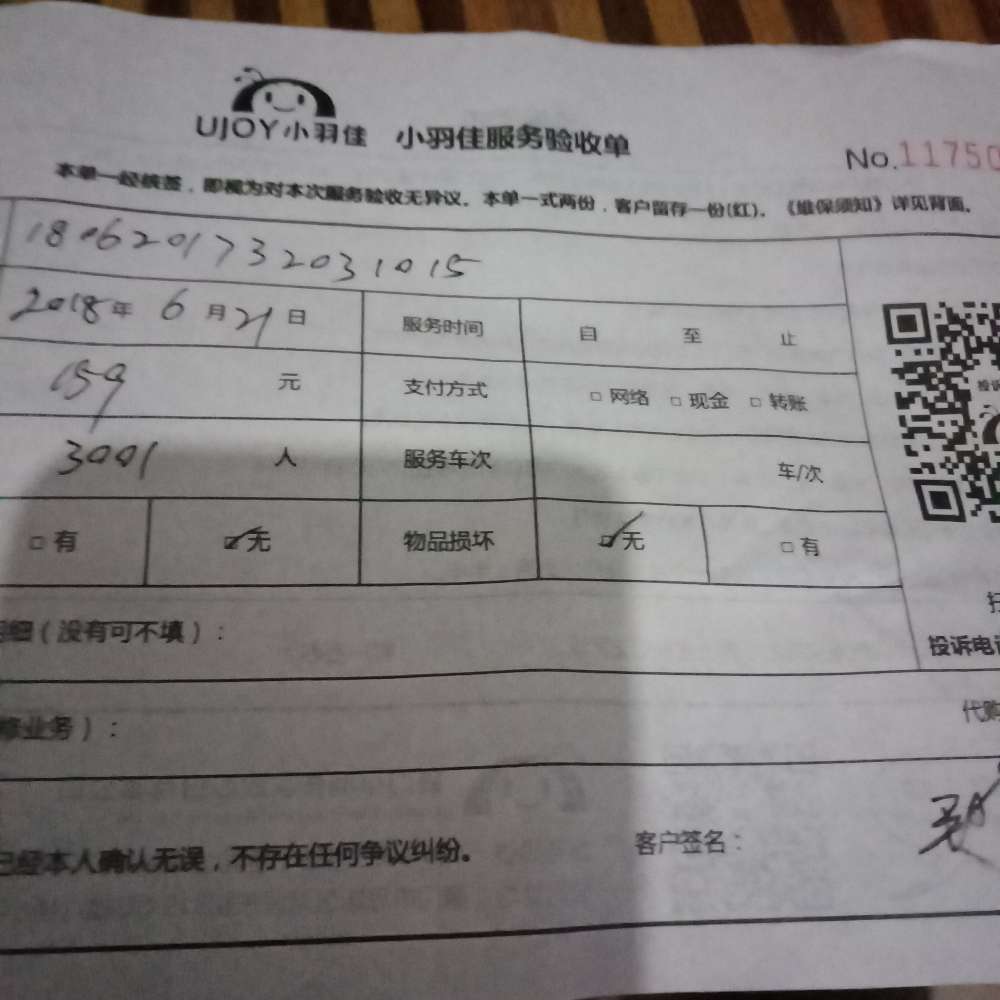 UJOY小羽佳 小羽佳服务验收单 No.11750
本单一经核签，即视为对本次服务验收无异议。本单一式两份，客户留存一份(红)。《维保须知》详见背面。
1806201732031015
2018年 6月21日 服务时间 自 至 止
159 元 支付方式 □ 网络 □ 现金 □ 转账
3001 人 服务车次 车/次
□ 有 ☑无 物品损坏 ☑无 □ 有
投诉
细（没有可不填）：
投诉电
业务）：
代购
已经本人确认无误，不存在任何争议纠纷。 客户签名：